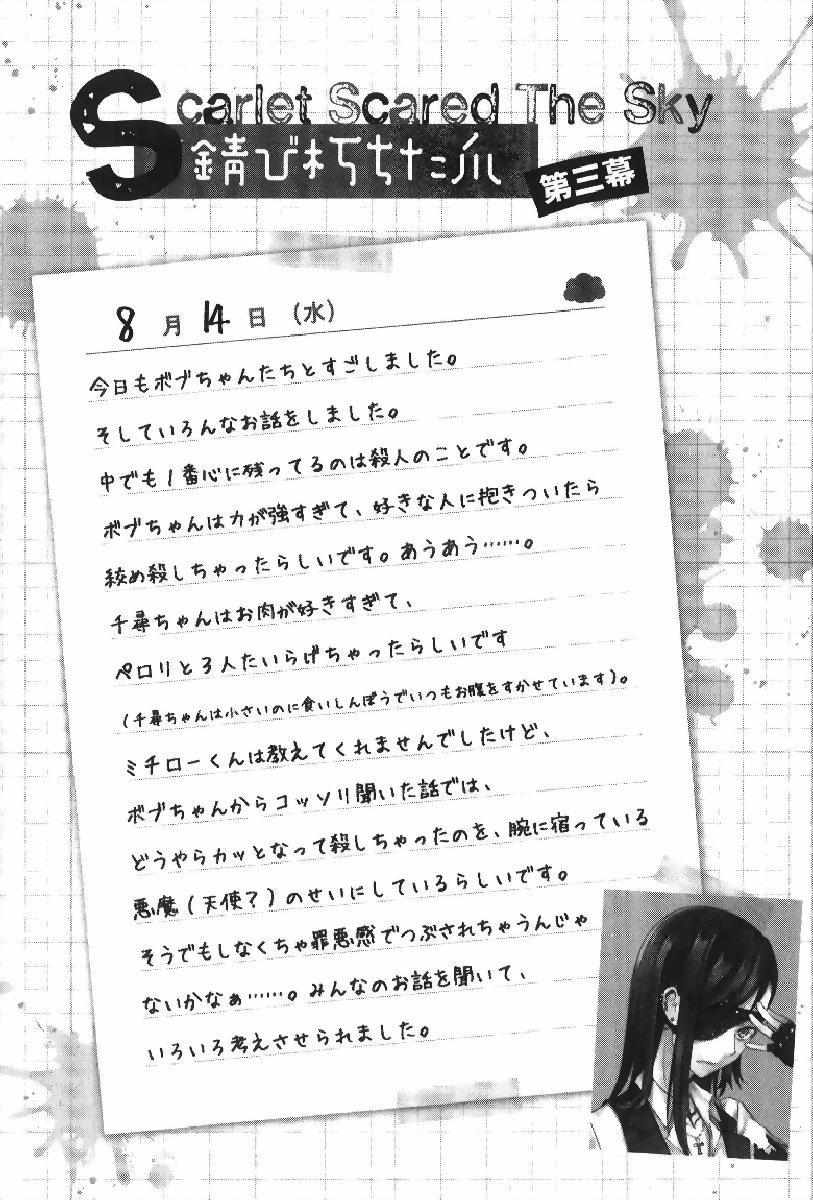 Scarlet Scared The Sky
錆び朽ちた爪
第三幕
8月14日（水）
今日もボブちゃんたちとすごしました。
そしていろんなお話をしました。
中でも1番心に残ってるのは殺人のことです。
ボブちゃんは力が強すぎて、好きな人に抱きついたら
絞め殺しちゃったらしいです。あうあう……。
千尋ちゃんはお肉が好きすぎて、
ペロリと3人たいらげちゃったらしいです
（千尋ちゃんは小さいのに食いしんぼうでいつもお腹をすかせています）。
ミチローくんは教えてくれませんでしたけど、
ボブちゃんからコッソリ聞いた話では、
どうやらカッとなって殺しちゃったのを、腕に宿っている
悪魔（天使？）のせいにしているらしいです。
そうでもしなくちゃ罪悪感でつぶされちゃうんじゃ
ないかなぁ……。みんなのお話を聞いて、
いろいろ考えさせられました。